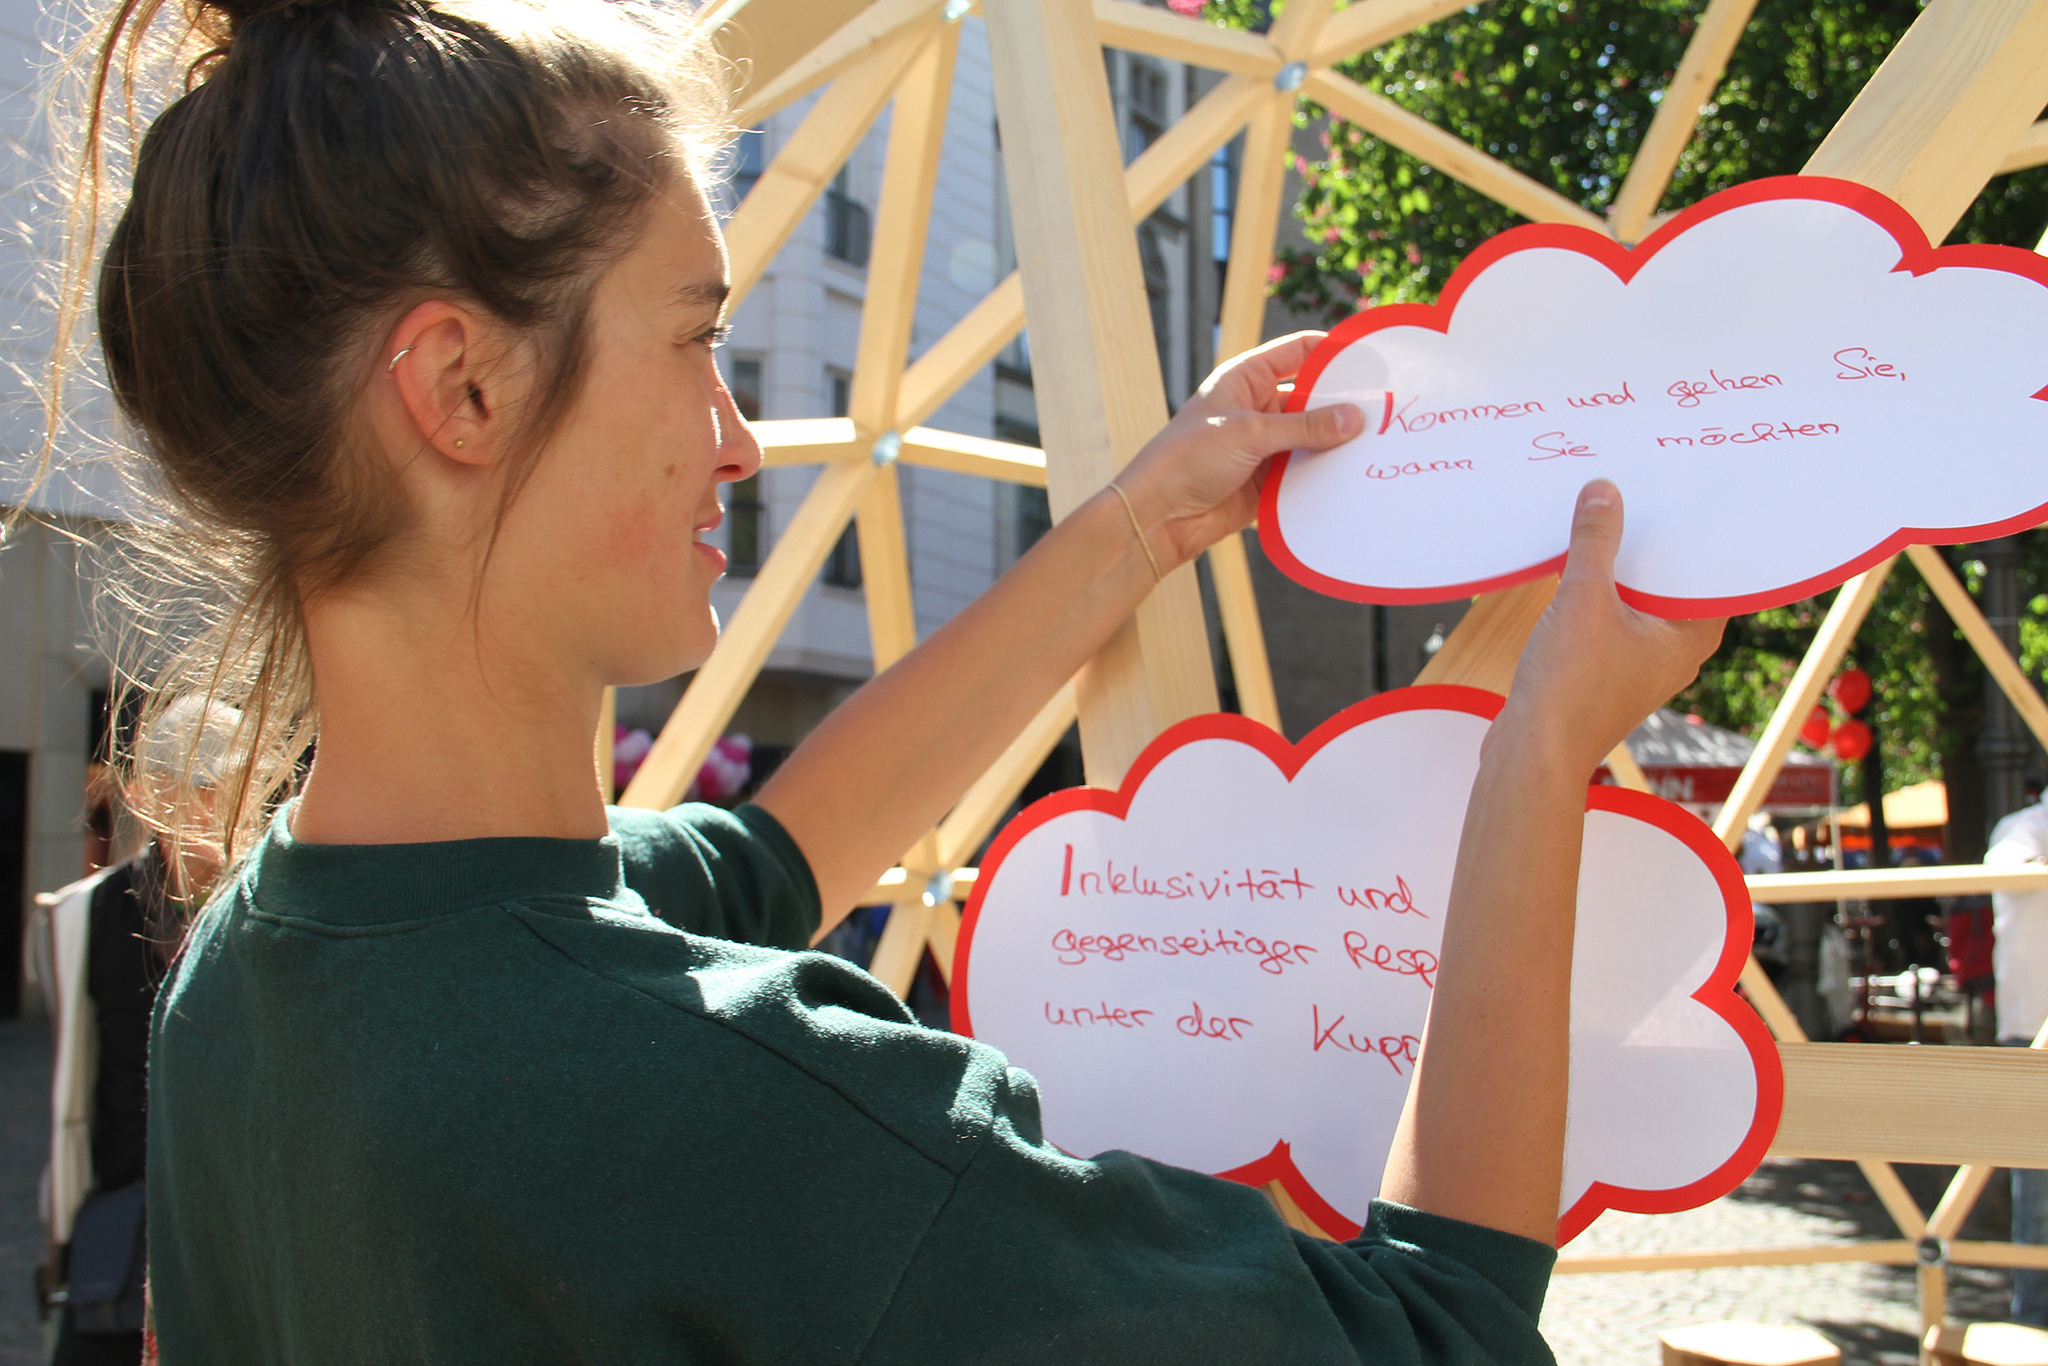 Kommen und gehen Sie,
wann Sie möchten
Inklusivität und
gegenseitiger Resp
unter der Kupp